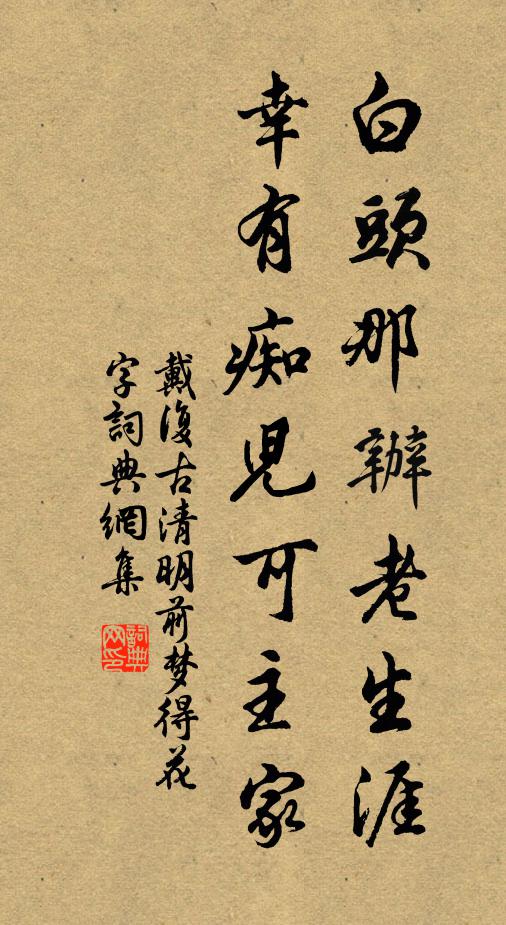 白頭那辦老生涯
幸有痴兒可主家
戴復古清明前梦得花
字詞典網集
詞典
网印